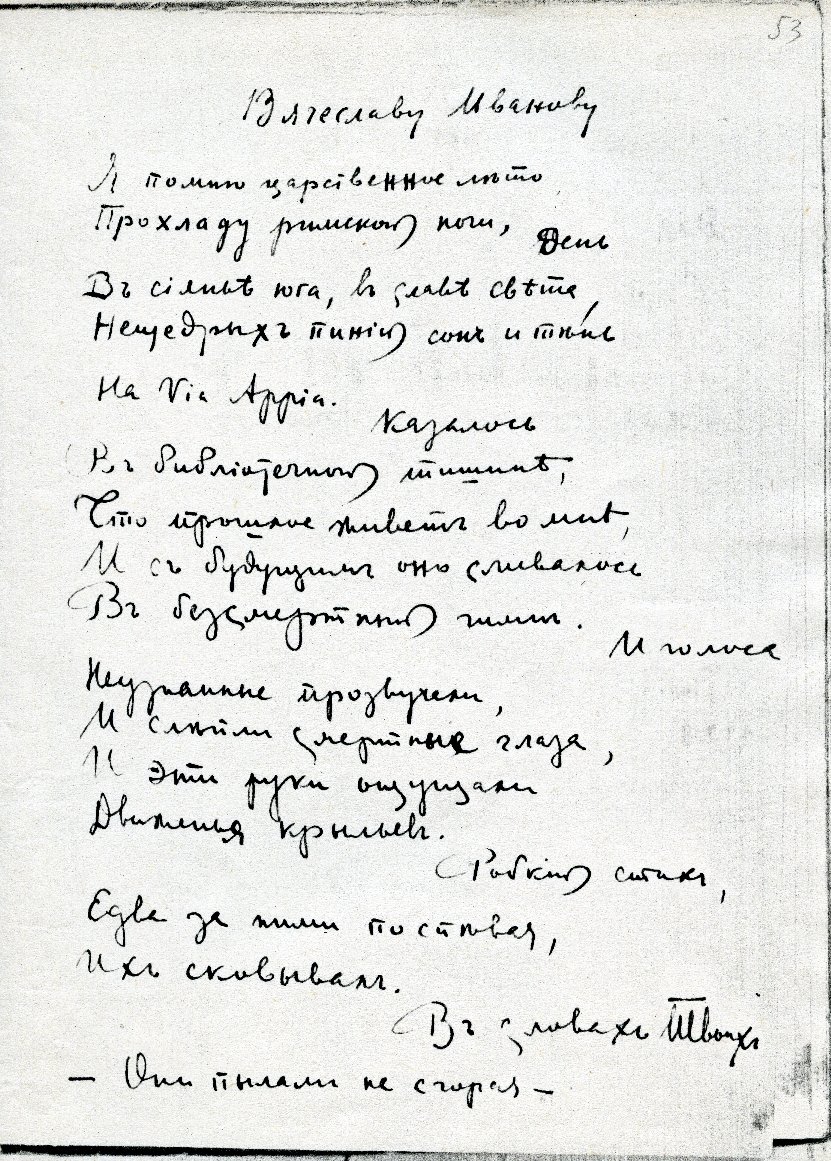 53
Вячеславу Иванову
Я помню царственное лѣто,
Прохладу римской ночи,
День
Въ сіяньѣ юга, въ славѣ свѣта,
Нещедрыхъ пиній сонъ и тѣнь
На Via Appia.
Казалось
Въ библіотечной тишинѣ,
Что прошлое живетъ во мнѣ,
И съ будущимъ оно сливалось
Въ безсмертный гимнъ.
И голоса
Неузнанные прозвучали,
И слѣпли смертные глаза,
И эти руки ощущали
Движенья крыльевъ.
Робкій стихъ,
Едва за ними поспѣвая,
Ихъ сковывалъ.
Въ словахъ Твоихъ
— Они пылали не сгорая —